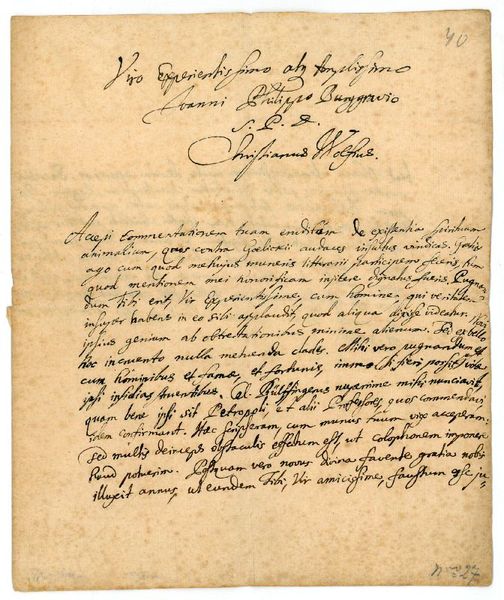 40
Viro Experientissimo atq Amplissimo
Joanni Philippo Burggravio
S. P. D.
Christianus Wolfius.
Accepi commentationem tuam eruditam de existentia spirituum
animalium, quos contra Goelickii audaces insultus vindicas. Gratias
ago cum quod me hujus muneris litterarii participem feceris, tum
quod mentionem mei honorificam injicere dignatus fueris. Pugnan-
dum Tibi erit, Vir Experientissime, cum homine, qui veritatem
insuper habens in eo sibi applaudit, quod aliqua dixisse videatur. Novi
ipsius genium ab obtrectationibus minime alienum. Sed ex bello
hoc incruento nulla metuenda clades. Mihi vero pugnandum est
cum hominibus et famae, et fortunis, immo si fieri posset vitae
ipsi insidias struentibus. Cel. Bülffingerus nuperrime mihi nunciavit,
quam bene ipsi sit Petropoli, et alii Professores, quos commendavi
idem confirmant. Haec scripseram, cum munus tuum vix acceperam:
sed multis deinceps obstaculis effectum est, ut colophonem imponere
haud potuerim. Postquam vero novus divina favente gratia nobis
illuxit annus, ut eundem Tibi, Vir amicissime, faustum esse ju-
27